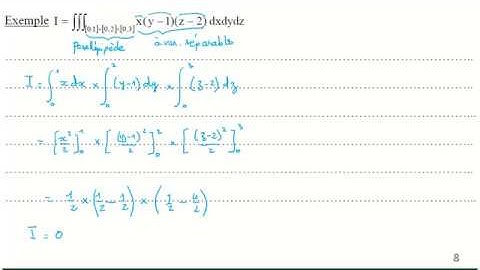 Exemple I = ∭[0,1]×[0,2]×[0,3] x(y – 1)(z – 2) dxdydz
parallépipède à var. séparables
I = ∫₀¹ x dx × ∫₀² (y-1) dy × ∫₀³ (z-2) dz
= [x²/2]₀¹ × [(y-1)²/2]₀² × [(z-2)²/2]₀³
= 1/2 × (1/2 - 1/2) × (1/2 - 4/2)
I = 0
8